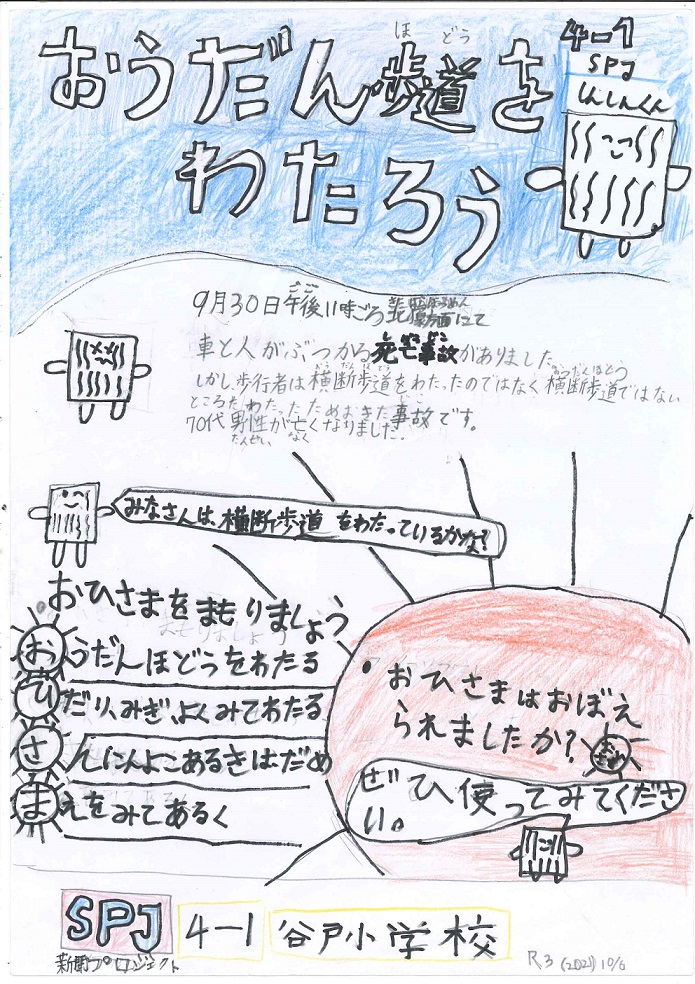 おうだん歩道を
ほどう
わたろう
4-1
SPJ
しんしんくん
9月30日午後11時ごろ
ごご
にて
車と人がぶつかる死亡事故がありました
しかし、歩行者は横断歩道をわたったのではなく横断歩道ではない
ところをわたったためおきた事故です。
70代男性が亡くなりました.
だんせい なく
みなさんは、横断歩道をわたっているかな?
おひさまをまもりましょう
おうだんほどうをわたる
ひだり、みぎ、よくみてわたる
さんにんよこあるきはだめ
まえをみてあるく
・おひさまはおぼえ
られましたか?
ぜひ使ってみてくださ
い。
SPJ
4-1
谷戸小学校
新聞プロジェクト
R.3 (2021) 10/6